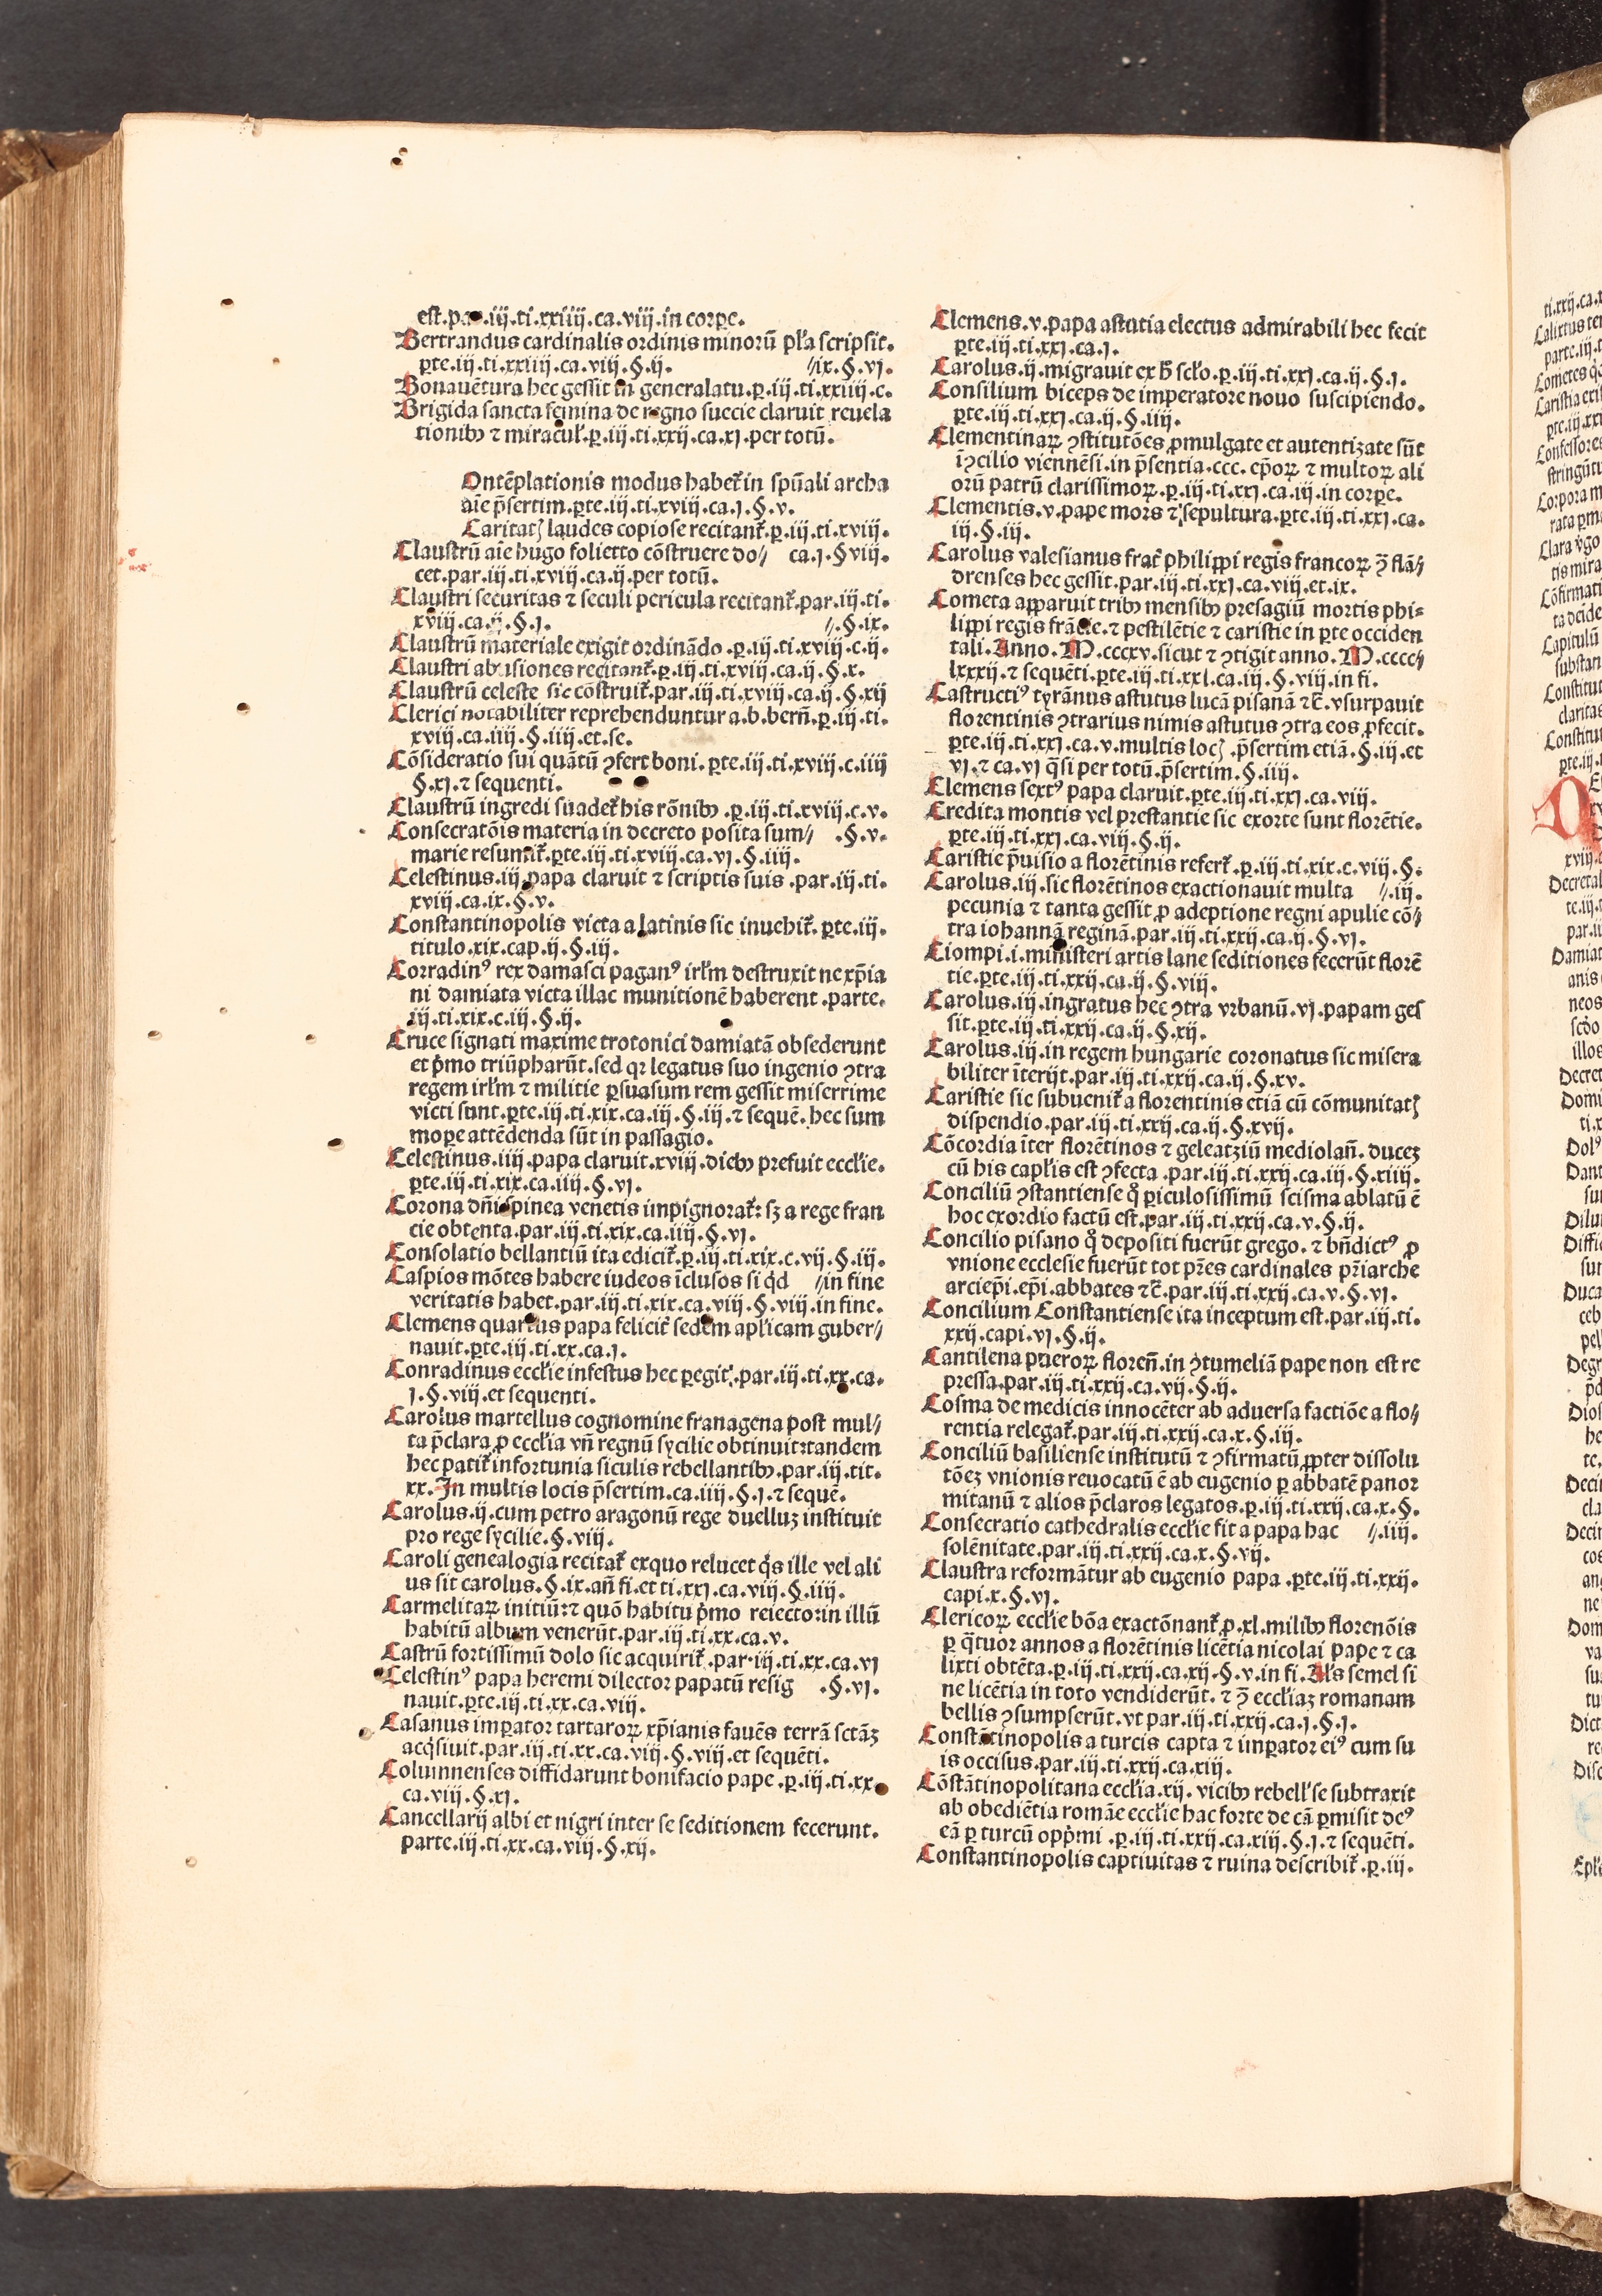 est.par.iij.ti.xxiiij.ca.viij.in corꝑe.
Bertrandus cardinalis ordinis minorū pl'a scripsit.
ꝑte.iij.ti.xxiiij.ca.viij.§.ij. //ix.§.vj.
Bonauētura hec gessit in generalatu.ꝑ.iij.ti.xxiiij.c.
Brigida sancta femina de regno succie claruit reuela
tionibꝫ ⁊ miracul'.ꝑ.iij.ti.xxij.ca.xj.per totū.
Ontēplationis modus habet᷑ in spūali archa
aīe p̄sertim.ꝑte.iij.ti.xviij.ca.j.§.v.
Caritatꝭ laudes copiose recitant᷑.ꝑ.iij.ti.xviij.
Claustrū aīe hugo folietto cōstruere do// ca.j.§viij.
cet.par.iij.ti.xviij.ca.ij.per totū.
Claustri securitas ⁊ seculi pericula recitant᷑.par.iij.ti.
xviij.ca.ij.§.j. //.§.ix.
Claustrū materiale exigit ordinādo.ꝑ.iij.ti.xviij.c.ij.
Claustri abusiones recitant᷑.ꝑ.iij.ti.xviij.ca.ij.§.x.
Claustrū celeste sic cōstruit᷑.par.iij.ti.xviij.ca.ij.§.xij
Clerici notabiliter reprehenduntur a.b.bern̄.ꝑ.iij.ti.
xviij.ca.iij.§.iiij.et.se.
Cōsideratio sui quātū ꝯfert boni.ꝑte.iij.ti.xviij.c.iiij
§.xj.⁊ sequenti.
Claustrū ingredi suadet᷑ his rōnibꝫ.ꝑ.iij.ti.xviij.c.v.
Consecratōis materia in decreto posita sum// .§.v.
marie resumit᷑.ꝑte.iij.ti.xviij.ca.vj.§.iiij.
Celestinus.iij.papa claruit ⁊ scriptis suis.par.iij.ti.
xviij.ca.ix.§.v.
Constantinopolis victa a latinis sic inuehit᷑.ꝑte.iij.
titulo.xix.cap.ij.§.iij.
Corradinꝰ rex damasci paganꝰ irl'm destruxit ne xp̄ia
ni damiata victa illac munitionē haberent.parte.
iij.ti.xix.c.iij.§.ij.
Cruce signati maxime trotonici damiatā obsederunt
et p̄mo triūpharūt.sed qꝛ legatus suo ingenio ꝯtra
regem irl'm ⁊ militie ꝑsuasum rem gessit miserrime
victi sunt.ꝑte.iij.ti.xix.ca.iij.§.iij.⁊ sequē.hec sum
moꝑe attēdenda sūt in passagio.
Celestinus.iiij.papa claruit.xviij.diebꝫ prefuit eccl'ie.
ꝑte.iij.ti.xix.ca.iiij.§.vj.
Corona dn̄i spinea venetis inpignorat᷑: sꝫ a rege fran
cie obtenta.par.iij.ti.xix.ca.iiij.§.vj.
Consolatio bellantiū ita edicit᷑.ꝑ.iij.ti.xix.c.vij.§.iij.
Caspios mōtes habere iudeos īclusos si q̇d //in fine
veritatis habet.par.iij.ti.xix.ca.viij.§.viij.in fine.
Clemens quartus papa felicit᷑ sedem apl'icam guber//
nauit.ꝑte.iij.ti.xx.ca.j.
Conradinus eccl'ie infestus hec ꝑegit.par.iij.ti.xx.ca.
j.§.viij.et sequenti.
Carolus martellus cognomine franagena post mul//
ta p̄clara ꝓ eccl'ia vn̄ regnū sycilie obtinuit:tandem
hec patit᷑ infortunia siculis rebellantibꝫ.par.iij.tit.
xx.In multis locis p̄sertim.ca.iiij.§.j.⁊ sequē.
Carolus.ij.cum petro aragonū rege duelluꝫ instituit
pro rege sycilie.§.viij.
Caroli genealogia recitat᷑ exquo relucet q̇s ille vel ali
us sit carolus.§.ix.an̄ fi.et ti.xxj.ca.viij.§.iiij.
Carmelitaꝝ initiū:⁊ quō habitu p̄mo reiecto:in illū
habitū album venerūt.par.iij.ti.xx.ca.v.
Castrū fortissimū dolo sic acquirit᷑.par.iij.ti.xx.ca.vj
Celestinꝰ papa heremi dilector papatū resig .§.vj.
nauit.ꝑte.iij.ti.xx.ca.viij.
Casanus imꝑator tartaroꝝ xp̄ianis fauēs terrā sctāꝫ
acq̇siuit.par.iij.ti.xx.ca.viij.§.viij.et sequēti.
Columnenses diffidarunt bonifacio pape.ꝑ.iij.ti.xx.
ca.viij.§.xj.
Cancellarij albi et nigri inter se seditionem fecerunt.
parte.iij.ti.xx.ca.viij.§.xij.
Clemens.v.papa astutia electus admirabili hec fecit
ꝑte.iij.ti.xxj.ca.j.
Carolus.ij.migrauit ex h̄ scl'o.ꝑ.iij.ti.xxj.ca.ij.§.j.
Consilium biceps de imperatore nouo suscipiendo.
ꝑte.iij.ti.xxj.ca.ij.§.iiij.
Clementinaꝝ ꝯstitutōes ꝓmulgate et autentizate sūt
ī ꝯcilio viennēsi.in p̄sentia.ccc.ep̄oꝝ ⁊ multoꝝ ali
orū patrū clarissimoꝝ.ꝑ.iij.ti.xxj.ca.iij.in corꝑe.
Clementis.v.pape mors ⁊ sepultura.ꝑte.iij.ti.xxj.ca.
iij.§.iij.
Carolus valesianus frat᷑ philippi regis francoꝝ ꝯ̄ flā//
drenses hec gessit.par.iij.ti.xxj.ca.viij.et.ix.
Cometa apparuit tribꝫ mensibꝫ presagiū mortis phi=
lippi regis frācie.⁊ pestilētie ⁊ caristie in ꝑte occiden
tali.Anno.M.cccxv.sicut ⁊ ꝯtigit anno.M.cccc//
lxxxij.⁊ sequēti.ꝑte.iij.ti.xxl.ca.iij.§.viij.in fi.
Castructiꝰ tyrānus astutus lucā pisanā ⁊c̄.vsurpauit
florentinis ꝯtrarius nimis astutus ꝯtra eos ꝓfecit.
ꝑte.iij.ti.xxj.ca.v.multis locꝭ p̄sertim etiā.§.iij.et
vj.⁊ ca.vj q̄si per totū.p̄sertim.§.iiij.
Clemens sextꝰ papa claruit.ꝑte.iij.ti.xxj.ca.viij.
Credita montis vel prestantie sic exorte sunt florētie.
ꝑte.iij.ti.xxj.ca.viij.§.ij.
Caristie p̄uisio a florētinis refert᷑.ꝑ.iij.ti.xix.c.viij.§.
Carolus.iij.sic florētinos exactionauit multa //.iij.
pecunia ⁊ tanta gessit ꝓ adeptione regni apulie cō//
tra iohannā reginā.par.iij.ti.xxij.ca.ij.§.vj.
Ciompi.i.ministeri artis lane seditiones fecerūt florē
tie.ꝑte.iij.ti.xxij.ca.ij.§.viij.
Carolus.iij.ingratus hec ꝯtra vrbanū.vj.papam ges
sit.ꝑte.iij.ti.xxij.ca.ij.§.xij.
Carolus.iij.in regem hungarie coronatus sic misera
biliter īterijt.par.iij.ti.xxij.ca.ij.§.xv.
Caristie sic subuenit᷑ a florentinis etiā cū cōmunitatꝭ
dispendio.par.iij.ti.xxij.ca.ij.§.xvij.
Cōcordia īter florētinos ⁊ geleatziū mediolan̄.duceꝫ
cū his capl'is est ꝯfecta.par.iij.ti.xxij.ca.iij.§.xiiij.
Conciliū ꝯstantiense q̊ ꝑiculosissimū scisma ablatū ē
hoc exordio factū est.par.iij.ti.xxij.ca.v.§.ij.
Concilio pisano q̊ depositi fuerūt grego.⁊ bn̄dictꝰ ꝓ
vnione ecclesie fuerūt tot pr̄es cardinales pr̄iarche
arciep̄i.ep̄i.abbates ⁊c̄.par.iij.ti.xxij.ca.v.§.vj.
Concilium Constantiense ita inceptum est.par.iij.ti.
xxij.capi.vj.§.ij.
Cantilena pueroꝝ floren̄.in ꝯtumeliā pape non est re
pressa.par.iij.ti.xxij.ca.vij.§.ij.
Cosma de medicis innocēter ab aduersa factiōe a flo//
rentia relegat᷑.par.iij.ti.xxij.ca.x.§.iij.
Conciliū basiliense institutū ⁊ ꝯfirmatū ꝓpter dissolu
tōeꝫ vnionis reuocatū ē ab eugenio ꝑ abbatē panor
mitanū ⁊ alios p̄claros legatos.ꝑ.iij.ti.xxij.ca.x.§.
Consecratio cathedralis eccl'ie fit a papa hac //.iiij.
solēnitate.par.iij.ti.xxij.ca.x.§.vij.
Claustra reformātur ab eugenio papa.ꝑte.iij.ti.xxij.
capi.x.§.vj.
Clericoꝝ eccl'ie bōa exactōnant᷑ ꝓ.xl.milibꝫ florenōis
ꝑ q̄tuor annos a florētinis licētia nicolai pape ⁊ ca
lixti obtēta.ꝑ.iij.ti.xxij.ca.xij.§.v.in fi.Al's semel si
ne licētia in toto vendiderūt.⁊ ꝯ̄ eccl'iaꝫ romanam
bellis ꝯsumpserūt.vt par.iij.ti.xxij.ca.j.§.j.
Constātinopolis a turcis capta ⁊ imꝑator eiꝰ cum su
is occisus.par.iij.ti.xxij.ca.xiij.
Cōstātinopolitana eccl'ia.xij.vicibꝫ rebell' se subtraxit
ab obediētia romāe eccl'ie hac forte de cā ꝑmisit deꝰ
eā ꝑ turcū opp̄mi.ꝑ.iij.ti.xxij.ca.xiij.§.j.⁊ sequēti.
Constantinopolis captiuitas ⁊ ruina describit᷑.ꝑ.iij.